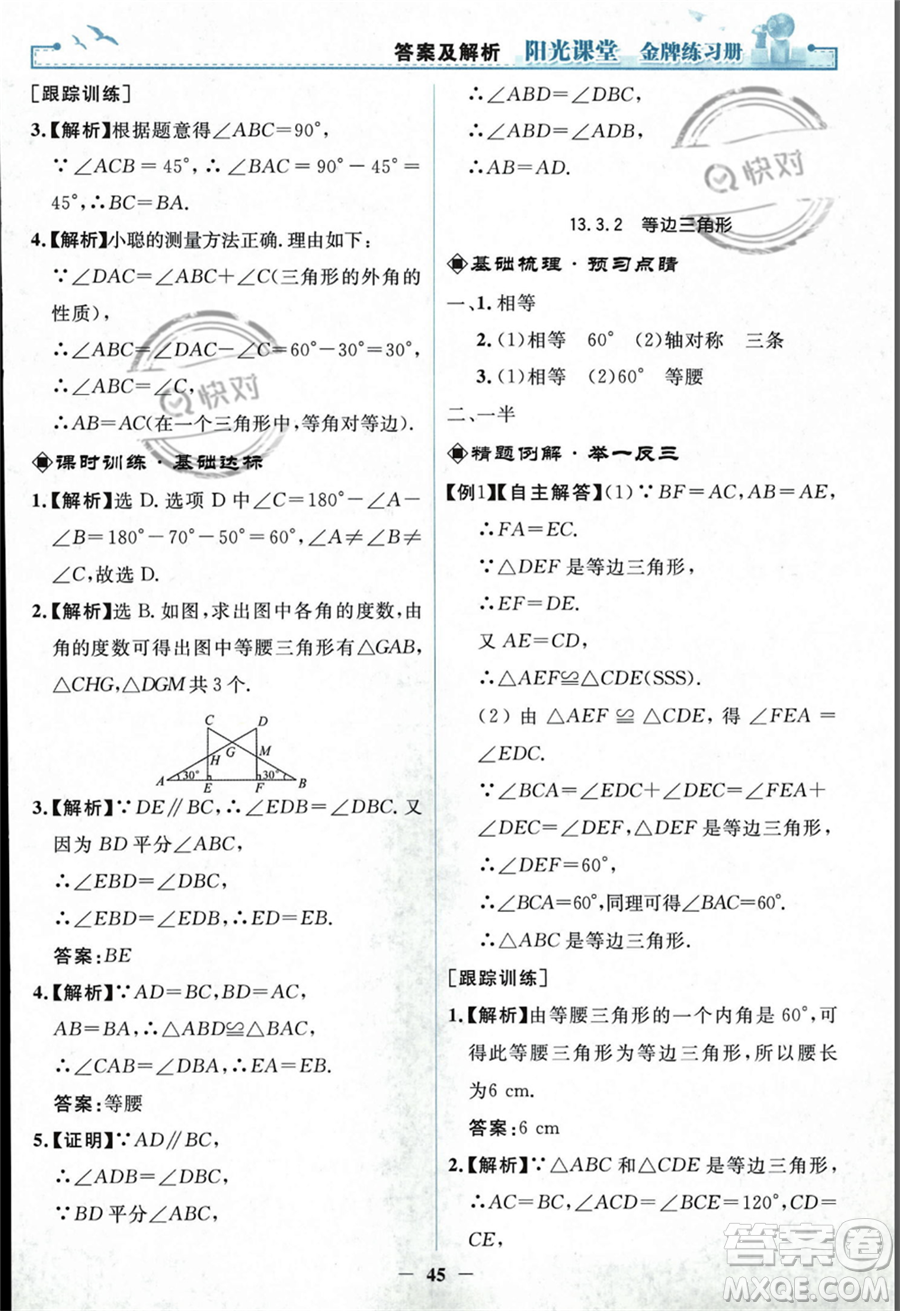 答案及解析 阳光课堂 金牌练习册
[跟踪训练]
3.【解析】根据题意得∠ABC=90°,
∵∠ACB=45°,∴∠BAC=90°-
45°=45°,∴BC=BA.
4.【解析】小聪的测量方法正确.理由如下:
∵∠DAC=∠ABC+∠C(三角形的外角的
性质),
∴∠ABC=∠DAC-∠C=60°-30°=30°,
∴∠ABC=∠C,
∴AB=AC(在一个三角形中,等角对等边).
课时训练·基础达标
1.【解析】选 D. 选项 D 中∠C=180°-∠A-
∠B=180°-70°-50°=60°,∴∠A≠∠B
≠∠C,故选 D.
2.【解析】选 B. 如图,求出图中各角的度数,由
角的度数可得出图中等腰三角形有△GAB,
△CHG,△DGM 共 3 个.
C D
H G M
A 30° E F 30° B
3.【解析】∵DE∥BC,∴∠EDB=∠DBC. 又
因为 BD 平分∠ABC,
∴∠EBD=∠DBC,
∴∠EBD=∠EDB,∴ED=EB.
答案:BE
4.【解析】∵AD=BC,BD=AC,
AB=BA,∴△ABD≌△BAC,
∴∠CAB=∠DBA.
答案:等腰
5.【证明】∵AD∥BC,
∴∠ADB=∠DBC,
∵BD 平分∠ABC,
∴∠ABD=∠DBC,
∴∠ABD=∠ADB,
∴AB=AD.
13.3.2 等边三角形
基础梳理·预习点睛
一、1.相等
2.(1)相等 60° (2)轴对称 三条
3.(1)相等 (2)60° 等腰
二、一半
精题例解·举一反三
【例1】【自主解答】(1)∵BF=AC,AB=AE,
∴FA=EC.
∵△DEF 是等边三角形,
∴EF=DE.
又 AE=CD,
∴△AEF≌△CDE(SSS).
(2)由△AEF≌△CDE,得∠FEA=
∠EDC,
∵∠BCA=∠EDC+∠DEC=∠FEA+
∠DEC=∠DEF,
∴∠DEF=60°,
∴∠BCA=60°,同理可得∠BAC=60°.
∴△ABC 是等边三角形.
[跟踪训练]
1.【解析】由等腰三角形的一个内角是 60°,可
得此等腰三角形为等边三角形,所以腰长
为6 cm.
答案:6 cm
2.【解析】∵△ABC 和△CDE 是等边三角形,
∴AC=BC,∠ACD=∠BCE=120°,CD=
CE,
— 45 —
快对
快对
答案圈
MXQE.COM